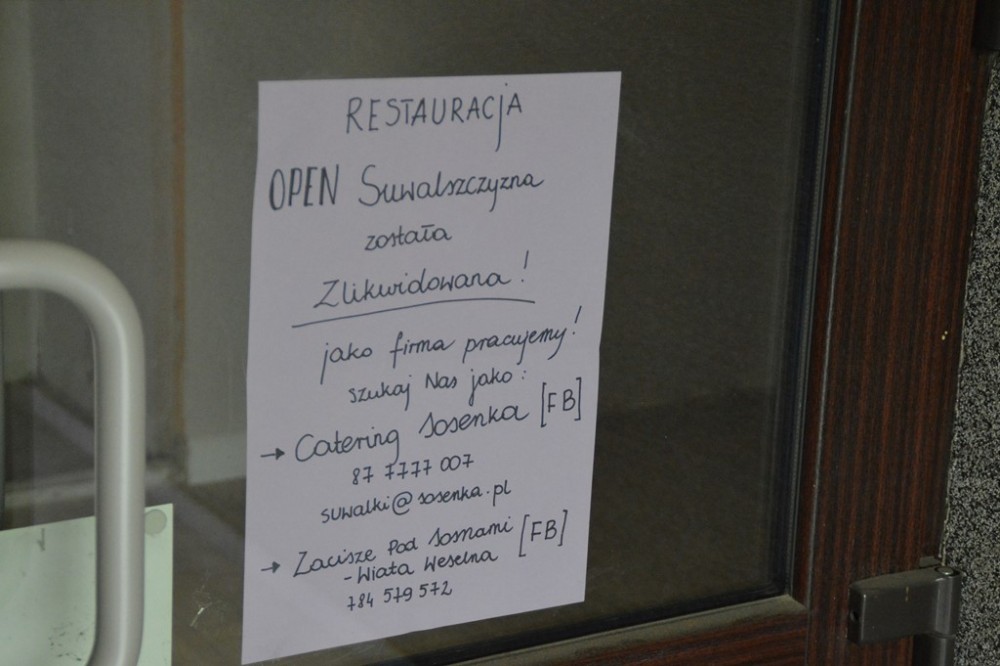 RESTAURACJA
OPEN Suwalszczyzna
została
Zlikwidowana!
jako firma pracujemy!
szukaj Nas jako:
→ Catering Sosenka [FB]
87 7777 007
suwalki@sosenka.pl
→ Zacisze Pod Sosnami [FB]
- Wiata Weselna
784 579 572